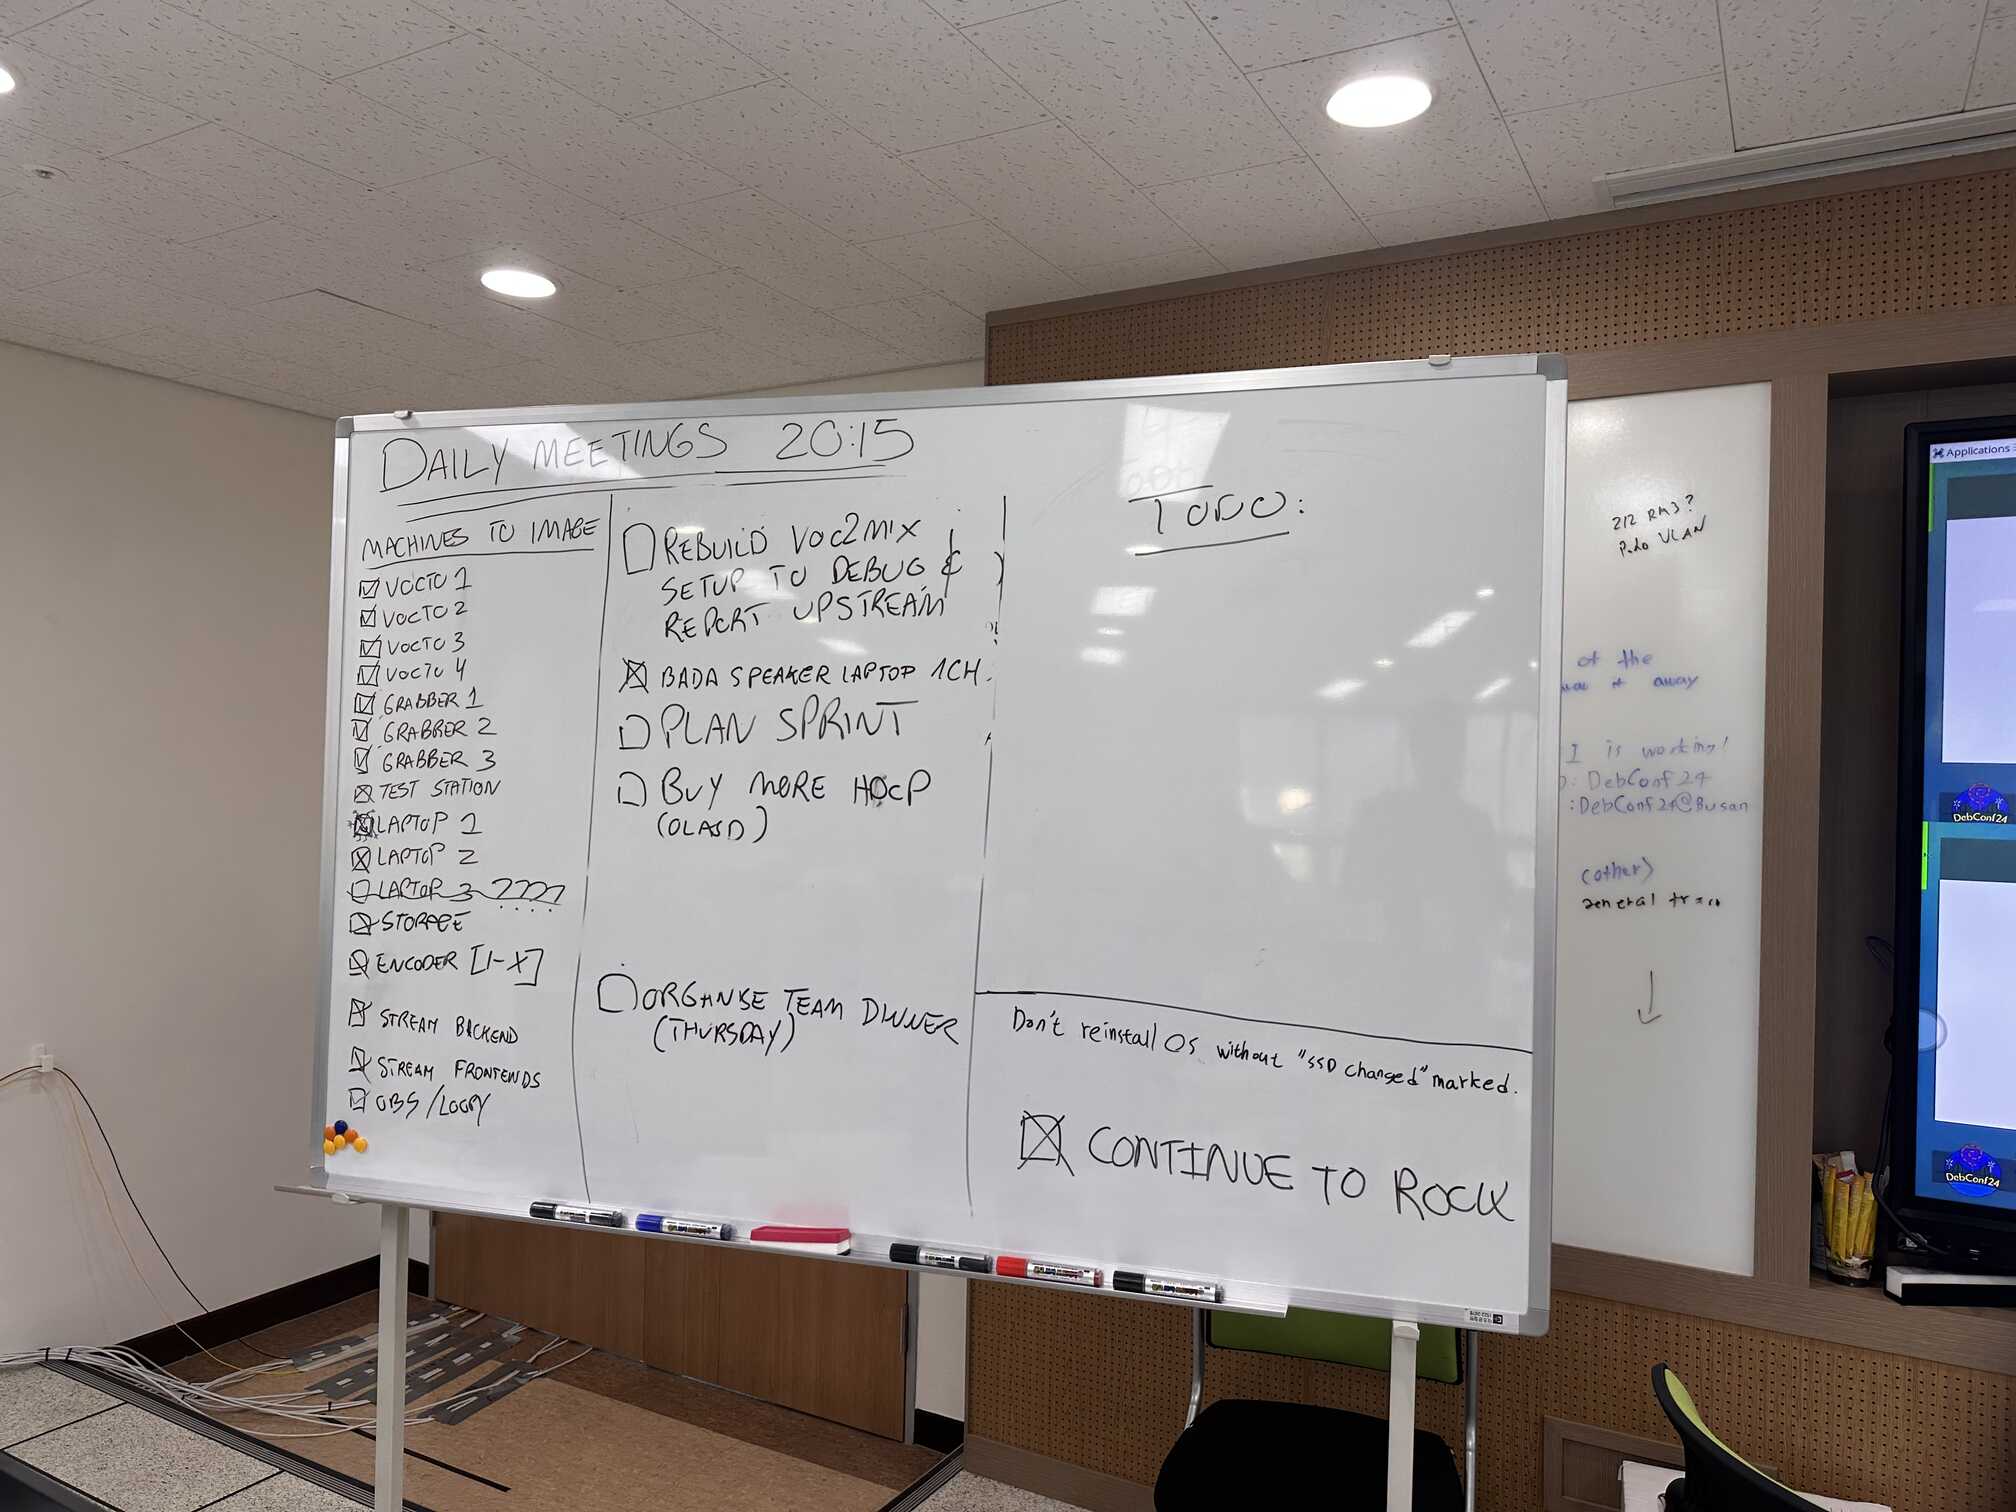 DAILY MEETINGS 20:15
MACHINES TO IMAGE
VOCTO 1
VOCTO 2
VOCTO 3
VOCTO 4
GRABBER 1
GRABBER 2
GRABBER 3
TEST STATION
LAPTOP 1
LAPTOP 2
LAPTOP 3 ????
STORAGE
ENCODER [1-X]
STREAM BACKEND
STREAM FRONTENDS
OBS/LOOPY
REBUILD VOC2MIX
SETUP TO DEBUG &
REPORT UPSTREAM
BADA SPEAKER LAPTOP 1CH.
PLAN SPRINT
BUY MORE HDCP
(OLASD)
ORGANISE TEAM DINNER
(THURSDAY)
TODO:
Don't reinstall OS without "SSD changed" marked.
CONTINUE TO ROCK
212 RM3?
VLAN
of the
away
I is working!
: DebConf24
:DebConf24@Busan
(other)
general
Applications
DebConf24
DebConf24